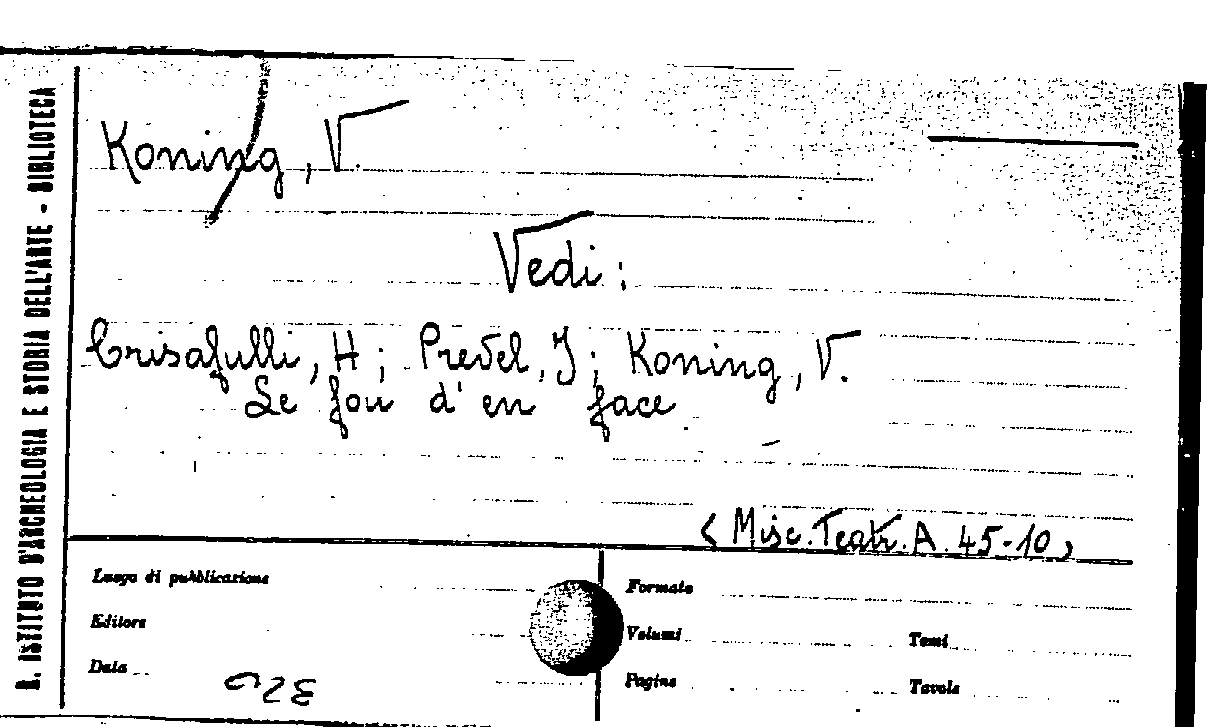 R. ISTITUTO D'ARCHEOLOGIA E STORIA DELL'ARTE - BIBLIOTECA
Koning, V.
Vedi:
Crisafulli, H; Prevel, J; Koning, V.
Le fou d'en face
< Misc. Teatr. A. 45-10 >
Luogo di pubblicazione
Editore
Data
Formato
Volumi
Tomi
Pagine
Tavole